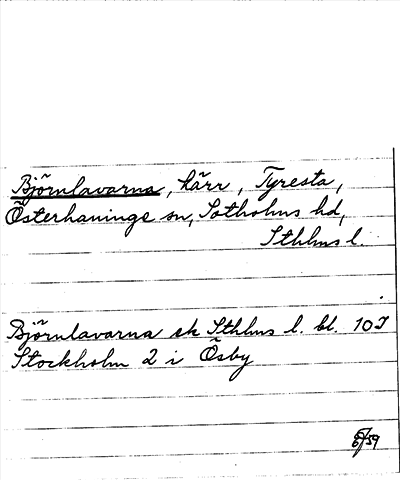 Björnlavarna, kärr, Tyresta,
Österhaninge sn, Sotholms hd,
Sthlms l.
Björnlavarna ek Sthlms l. bl. 10I
Stockholm 2 i Ösby
/59